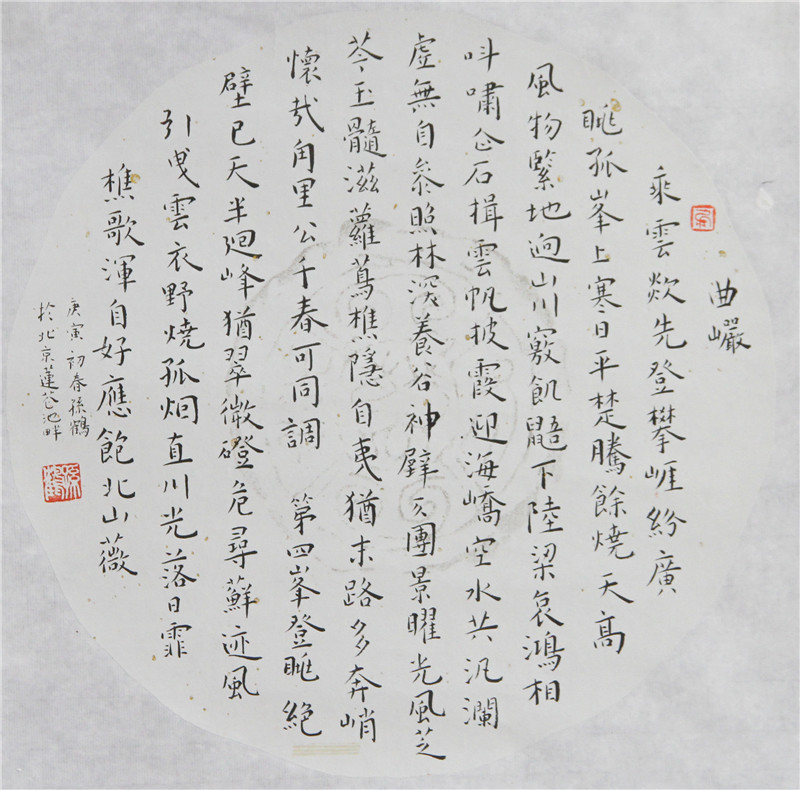 曲巖
乘雲欻先登攀崕紛廣
眺孤峯上寒日平楚騰餘燒天高
風物緊地迥山川竅飢鼯下陸梁哀鴻相
叫嘯企石揖雲帆披霞迎海嶠空水共汎瀾
虛無自參照林深養谷神壁仄團景曜光風芝
苓玉髓滋蘿蔦樵隱自夷猶末路多奔峭
懷哉角里公千春可同調 第四峯登眺 絕
壁已天半迴峰猶翠微磴危尋蘚迹風
引曳雲衣野燒孤烟直川光落日霏
樵歌渾自好應飽北山薇
庚寅初春孫鶴
於北京蓮花池畔